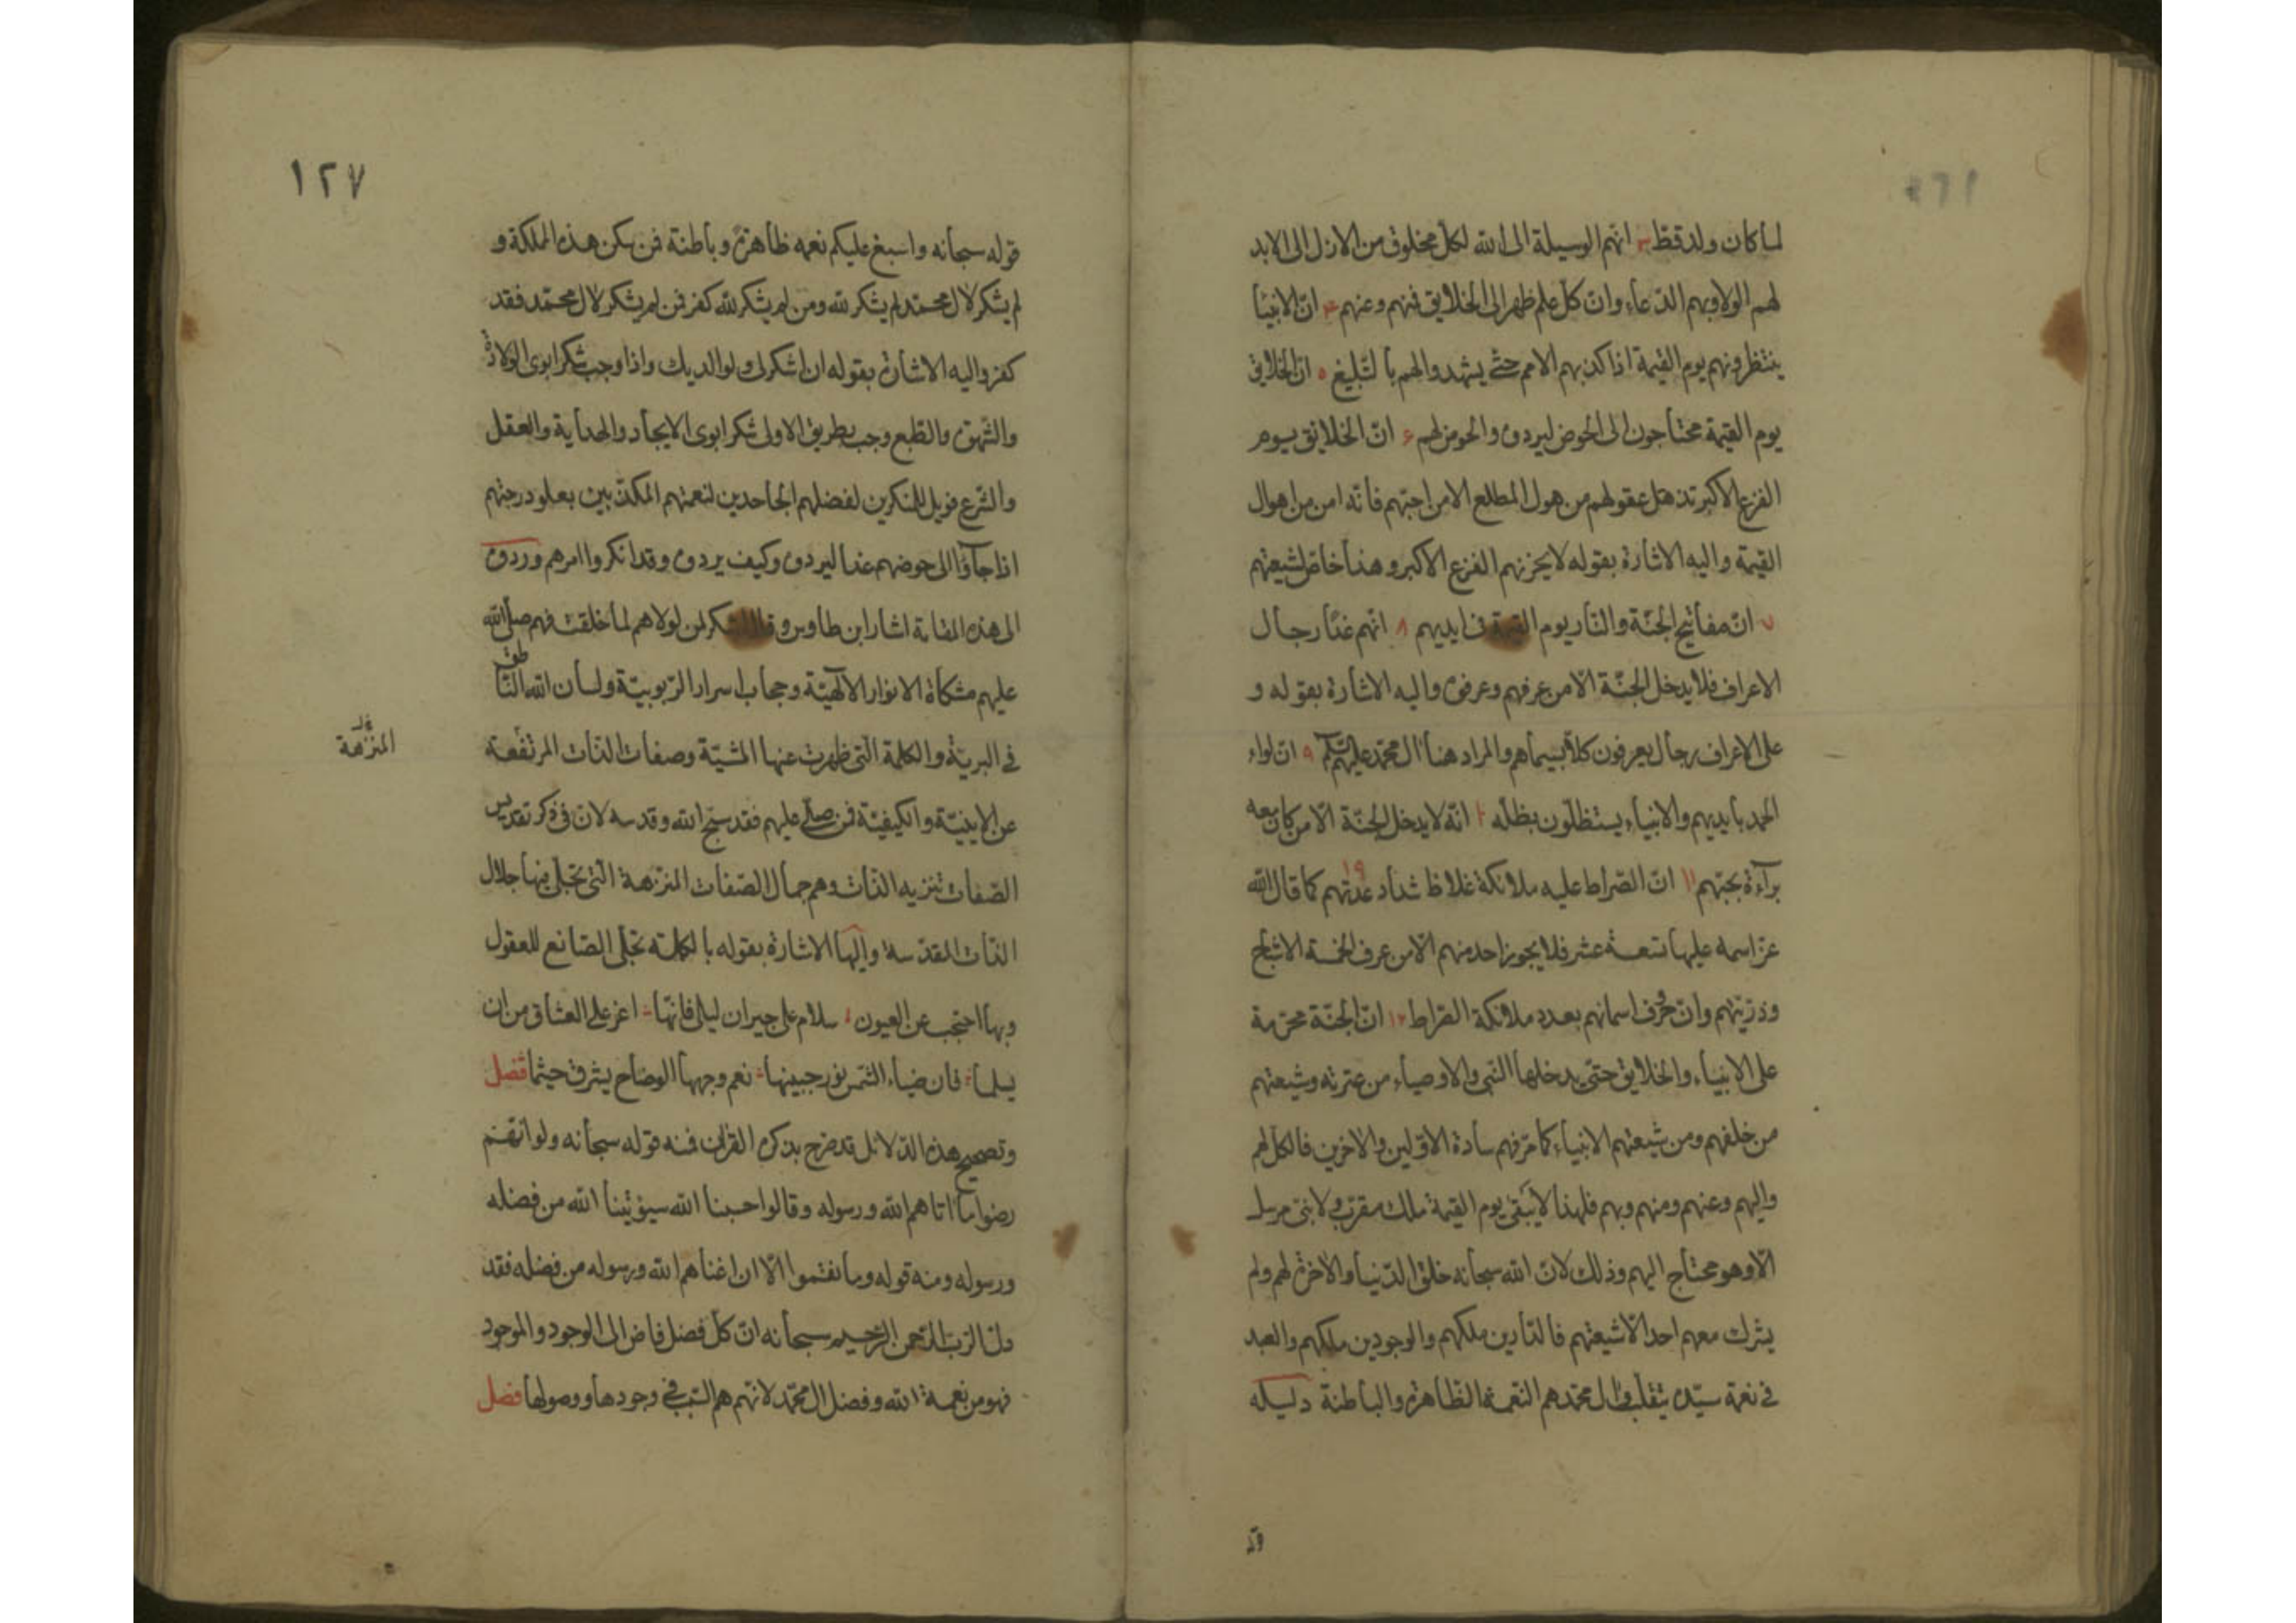 لما كان ولد قط ٣ انهم الوسيلة الى الله لكل مخلوق من الازل الى الابد
لهم الولا وبهم الدعاء وان كل علم ظهر الى الخلايق فمنهم وعنهم ٤ ان الانبيا
ينتظرونهم يوم القيمة اذا كذبهم الامم حتى يشهدوا لهم بالتبليغ ٥ ان الخلايق
يوم القيمة محتاجون الى الحوض ليردوه والحوض لهم ٦ ان الخلايق يوم
الفزع الاكبر تذهل عقولهم من هول المطلع الا من احبهم فانه امن من اهوال
القيمة واليه الاشارة بقوله لا يحزنهم الفزع الاكبر وهذا خاص لشيعتهم
٧ ان مفاتيح الجنة والنار يوم القيمة في ايديهم ٨ انهم غدا رجال
الاعراف فلا يدخل الجنة الا من عرفهم وعرفوه واليه الاشارة بقوله و
على الاعراف رجال يعرفون كلا بسيماهم والمراد هنا ال محمد عليهم السلام ٩ ان لواء
الحمد بايديهم والانبياء يستظلون بظله ١٠ انه لا يدخل الجنة الا من كان معه
براءة بحبهم ١١ ان الصراط عليه ملائكة غلاظ شداد عدتهم ١٩ كما قال الله
عز اسمه عليها تسعة عشر فلا يجوز احد منهم الا من عرف الخمسة الاشباح
وذريتهم وان حروف اسمائهم بعدد ملائكة الصراط ١٢ ان الجنة محرمة
على الانبياء والخلايق حتى يدخلها النبي والاوصياء من عترته وشيعتهم
من خلفهم ومن شيعتهم الانبياء كما مر فهم سادة الاولين والاخرين فالكل لهم
واليهم وعنهم ومنهم وبهم فلهذا لا يبقى يوم القيمة ملك مقرب ولا نبي مرسل
الا وهو محتاج اليهم وذلك لان الله سبحانه خلق الدنيا والاخرة لهم ولم
يشرك معهم احدا الا شيعتهم فالدارين ملكهم والوجودين ملكهم والعبد
في نعمة سيده يتقلب وال محمد هم النعمة الظاهرة والباطنة دليله
١٢٧
قوله سبحانه واسبغ عليكم نعمه ظاهرة وباطنة فمن سكن هذه المملكة و
لم يشكر لال محمد لم يشكر لله ومن لم يشكر لله كفر فمن لم يشكر لال محمد فقد
كفر واليه الاشارة بقوله ان اشكر لي ولوالديك واذا وجب شكر ابوى الولادة
والشهوة والطبع وجب بطريق الاولى شكر ابوى الايجاد والهداية والعقل
والشرع فويل للمنكرين لفضلهم الجاحدين لنعمتهم المكذبين بعلو درجتهم
اذا جاؤا الى حوضهم غدا ليردوه وكيف يردوه وقد انكروا امرهم وردوه
الى هذه المقامة اشار ابن طاوس وقال الشكر لمن لولاهم لما خلقت فهم صلى الله
عليهم مشكاة الانوار الآلهية وحجاب اسرار الربوبية ولسان الله الناطق
في البرية والكلمة التي ظهرت عنها المشية وصفات الذات المرتفعة
المنزهة
عن الاينية والكيفية فمن صلى عليهم فقد سبح الله وقدسه لان في ذكر تقديس
الصفات تنزيه الذات وهم جمال الصفات المنزهة التي تجلى فيها جلال
الذات المقدسة واليها الاشارة بقوله بالكلمة تجلى الصانع للعقول
وبها احتجب عن العيون سلام على جيران ليلى فانها اعز على العشاق من ان
يسلما فان ضياء الشمس نور جبينها نعم وجهها الوضاح يشرق حيثما فصل
وتصحيح هذه الدلائل قد صرح بذكره القران فمنه قوله سبحانه ولو انهم
رضوا ما اتاهم الله ورسوله وقالوا حسبنا الله سيؤتينا الله من فضله
ورسوله ومنه قوله وما نقموا الا ان اغناهم الله ورسوله من فضله فقد
دل الرب الرحمن الرحيم سبحانه ان كل فضل فاض الى الوجود والموجود
فهو من نعمة الله وفضل ال محمد لانهم هم السبب في وجودها ووصولها فصل